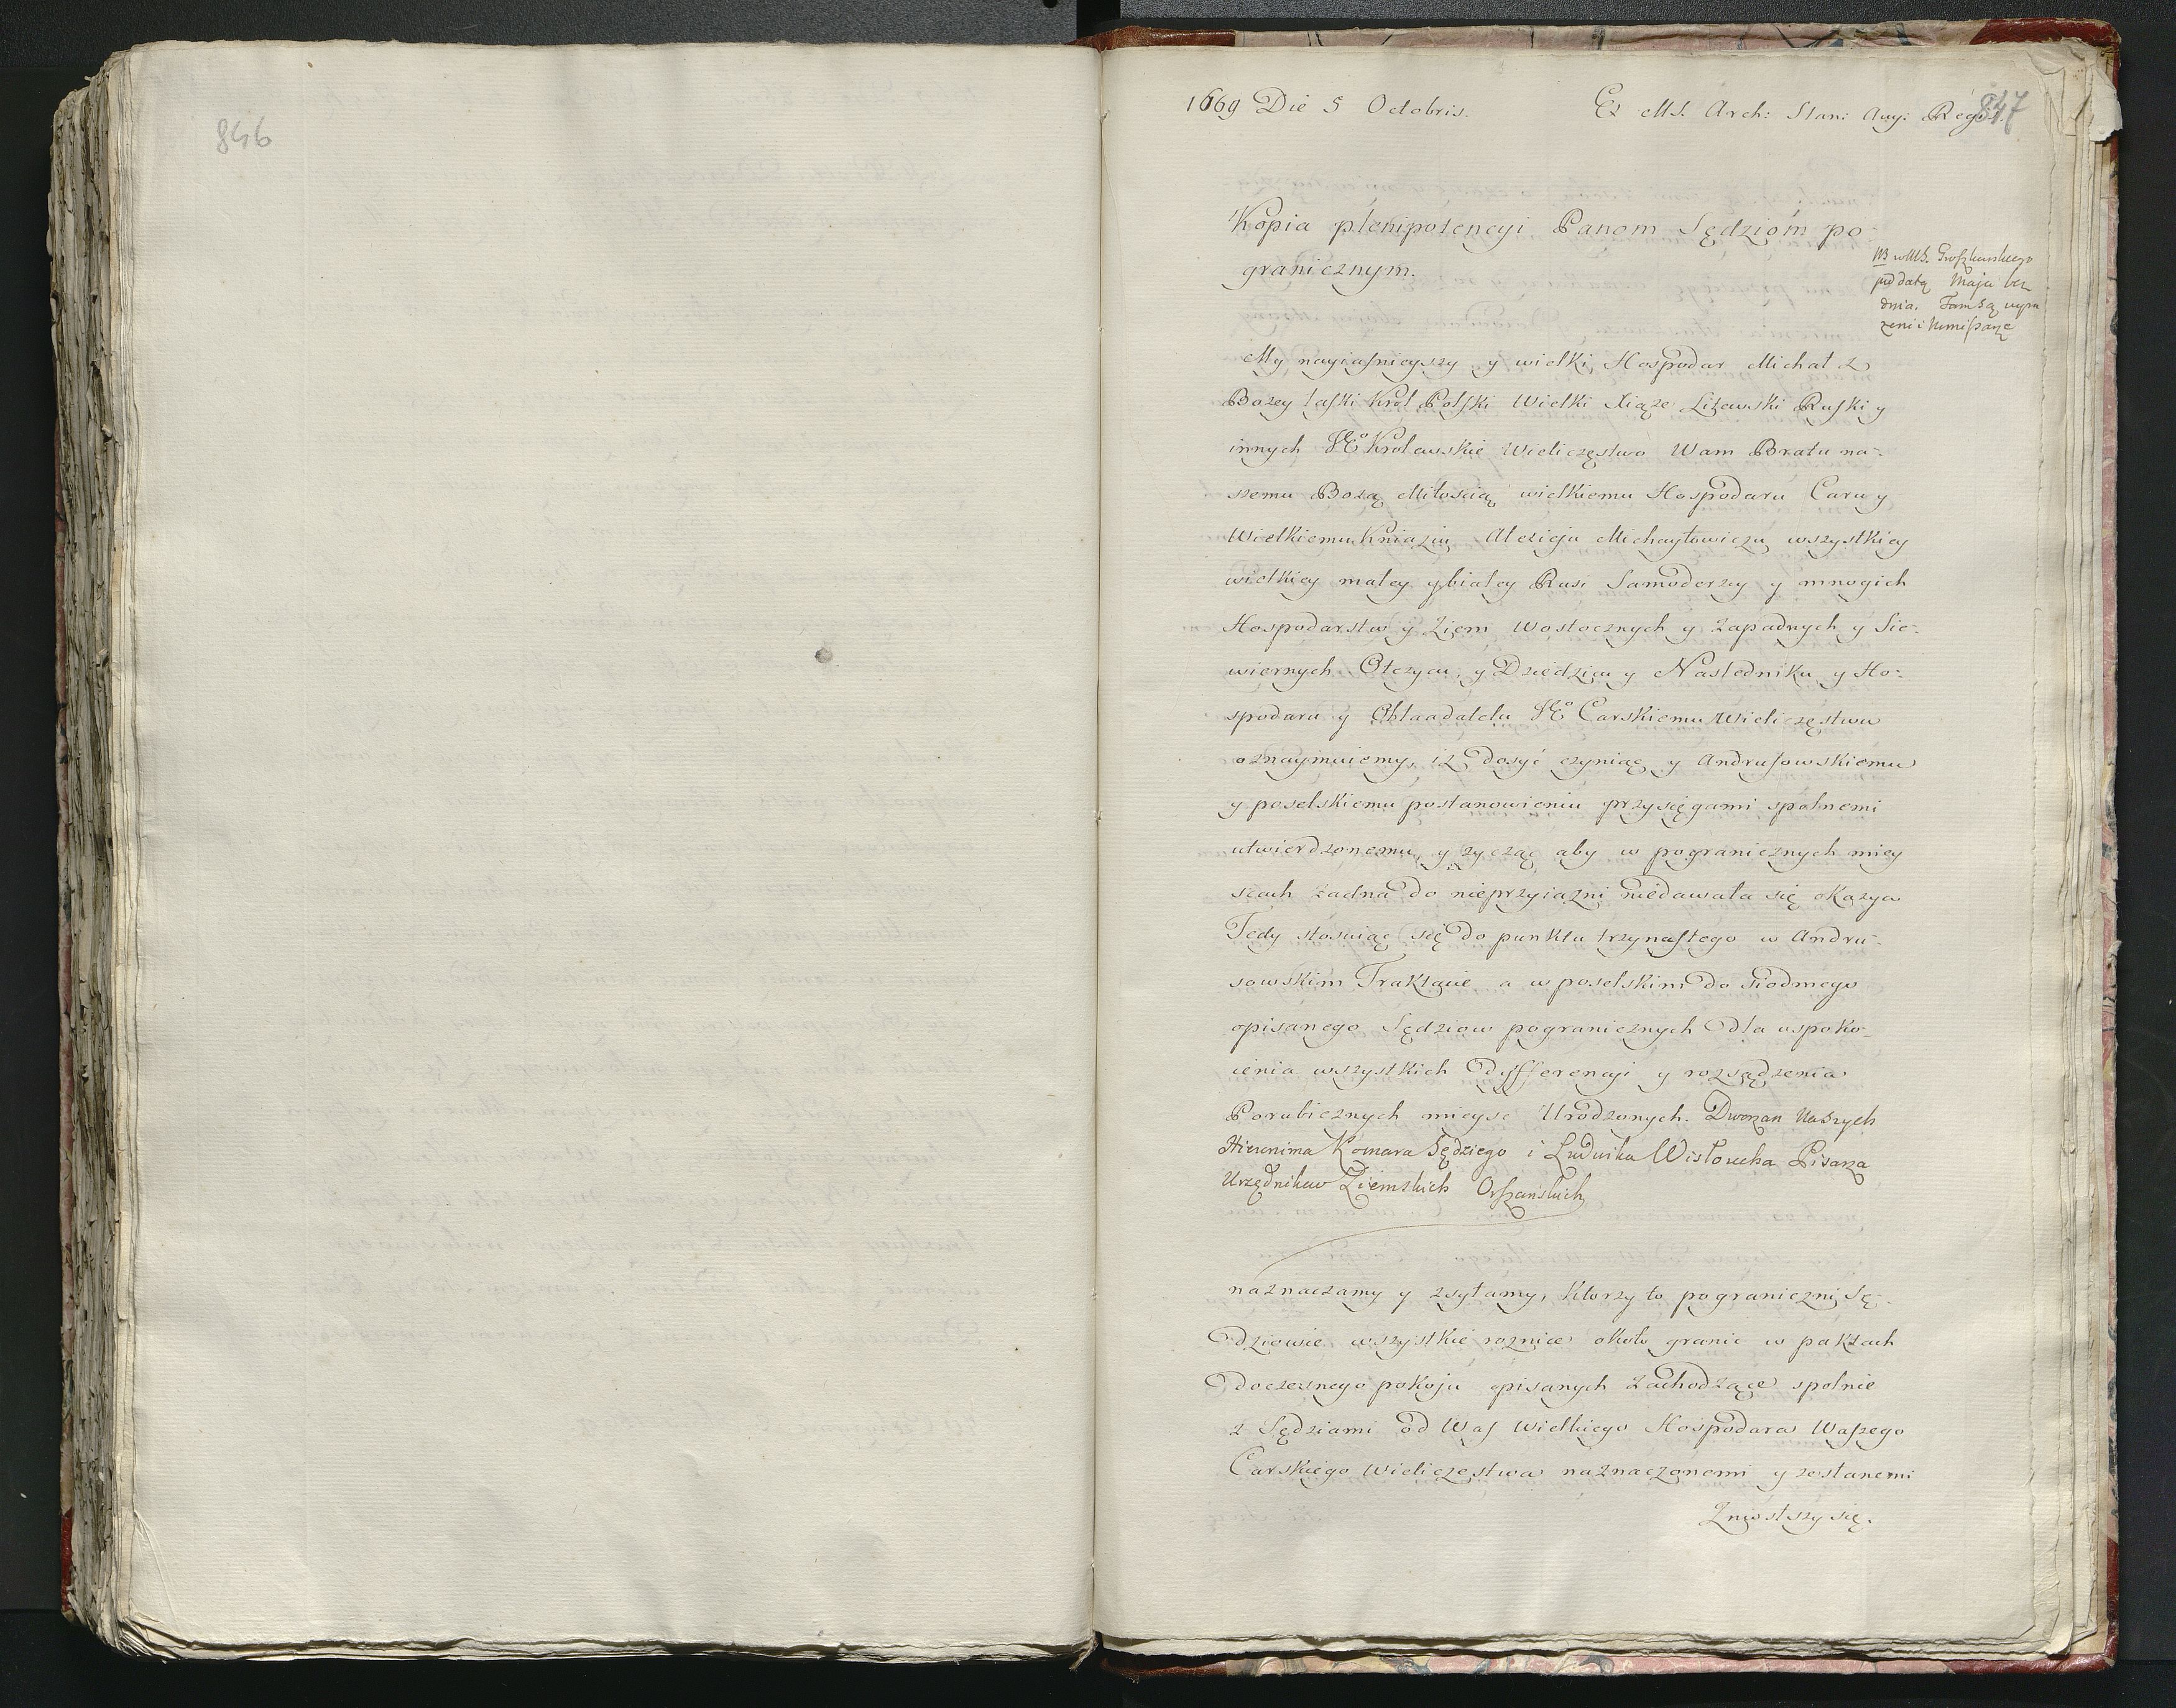 846
1669 Die 5 Octobris. Ex MS. Arch: Stan: Aug: Regis.
847
Kopia plenipotencyi Panom Sędziom po-
granicznym.
NB w MS. Groszkowskiego
pod datą Maja bez
dnia. Tam są wyra
żeni i Komissarze
My nayiasnieyszy y wielki Hospodar Michał z
Bożey łaski Krol Polski Wielki Xiąże Litewski Ruski y
innych JEº Krolewskie Wieliczęstwo Wam Bratu na-
szemu Bożą Miłoscią wielkiemu Hospodaru Caru y
Wielkiemu Kniaziu Alexieju Michayłowiczu wszystkiey
wielkiey małey y białey Rusi Samoderzcy y mnogich
Hospodarstw y Ziem Wostocznych y Zapadnych y Sie-
wiernych Otczycu, y Dziedzicu y Nasledniku y Ho-
spodaru y Obłaadatelu JEº Carskiemu Wieliczęstwu
oznaymuiemy, iż dosyć czyniąc y Andrusowskiemu
y poselskiemu postanowieniu przysięgami spolnemi
utwierdzonemu, y życząc aby w pogranicznych miey
scach żadna do nieprzyiazni niedawała się okazya
Tedy stosuiąc się do punktu trzynastego w Andru-
sowskim Traktacie a w poselskim do siodmego
opisanego Sędziow pogranicznych dla uspoko-
ienia wszystkich dyfferencyi y rozsądzenia
Porubicznych mieysc Urodzonych. Dworzan Naszych
Hieronima Komara Sędziego i Ludwika Wisłoucha Pisarza
Urzędnikow Ziemskich Orszańskich
naznaczamy y zsyłamy, Ktorzy to pograniczni Sę-
dziowie wszystkie roznice około granic w paktach
doczesnego pokoju opisanych zachodzące spolnie
z Sędziami od Was Wielkiego Hospodara Waszego
Carskiego Wieliczestwa naznaczonemi y zesłanemi
Zniosłszy się.